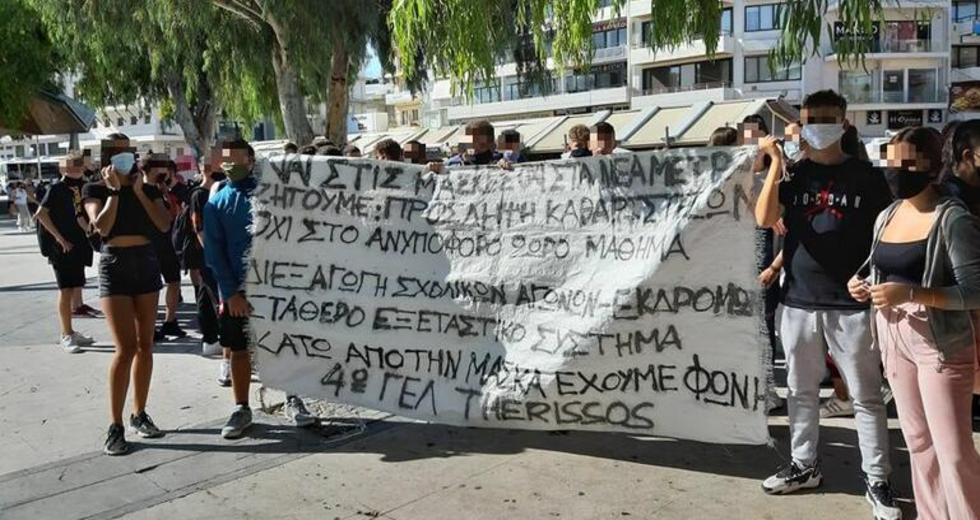 ΝΑΙ ΣΤΙΣ ΜΑΣΚΕΣ ΝΕΑ ΜΕΤΡ
ΖΗΤΟΥΜΕ: ΠΡΟΣΛΗΨΗ ΚΑΘΑΡΙΣΤΡΙΩΝ
ΟΧΙ ΣΤΟ ΑΝΥΠΟΦΟΡΟ 9ΩΡΟ ΜΑΘΗΜΑ
ΔΙΕΞΑΓΩΓΗ ΣΧΟΛΙΚΩΝ ΑΓΩΝΩΝ-ΕΚΔΡΟΜΩ
ΣΤΑΘΕΡΟ ΕΞΕΤΑΣΤΙΚΟ ΣΥΣΤΗΜΑ
ΚΑΤΩ ΑΠΟ ΤΗΝ ΜΑΣΚΑ ΕΧΟΥΜΕ ΦΩΝΗ
4ο ΓΕΛ THERISSOS
JORDAN